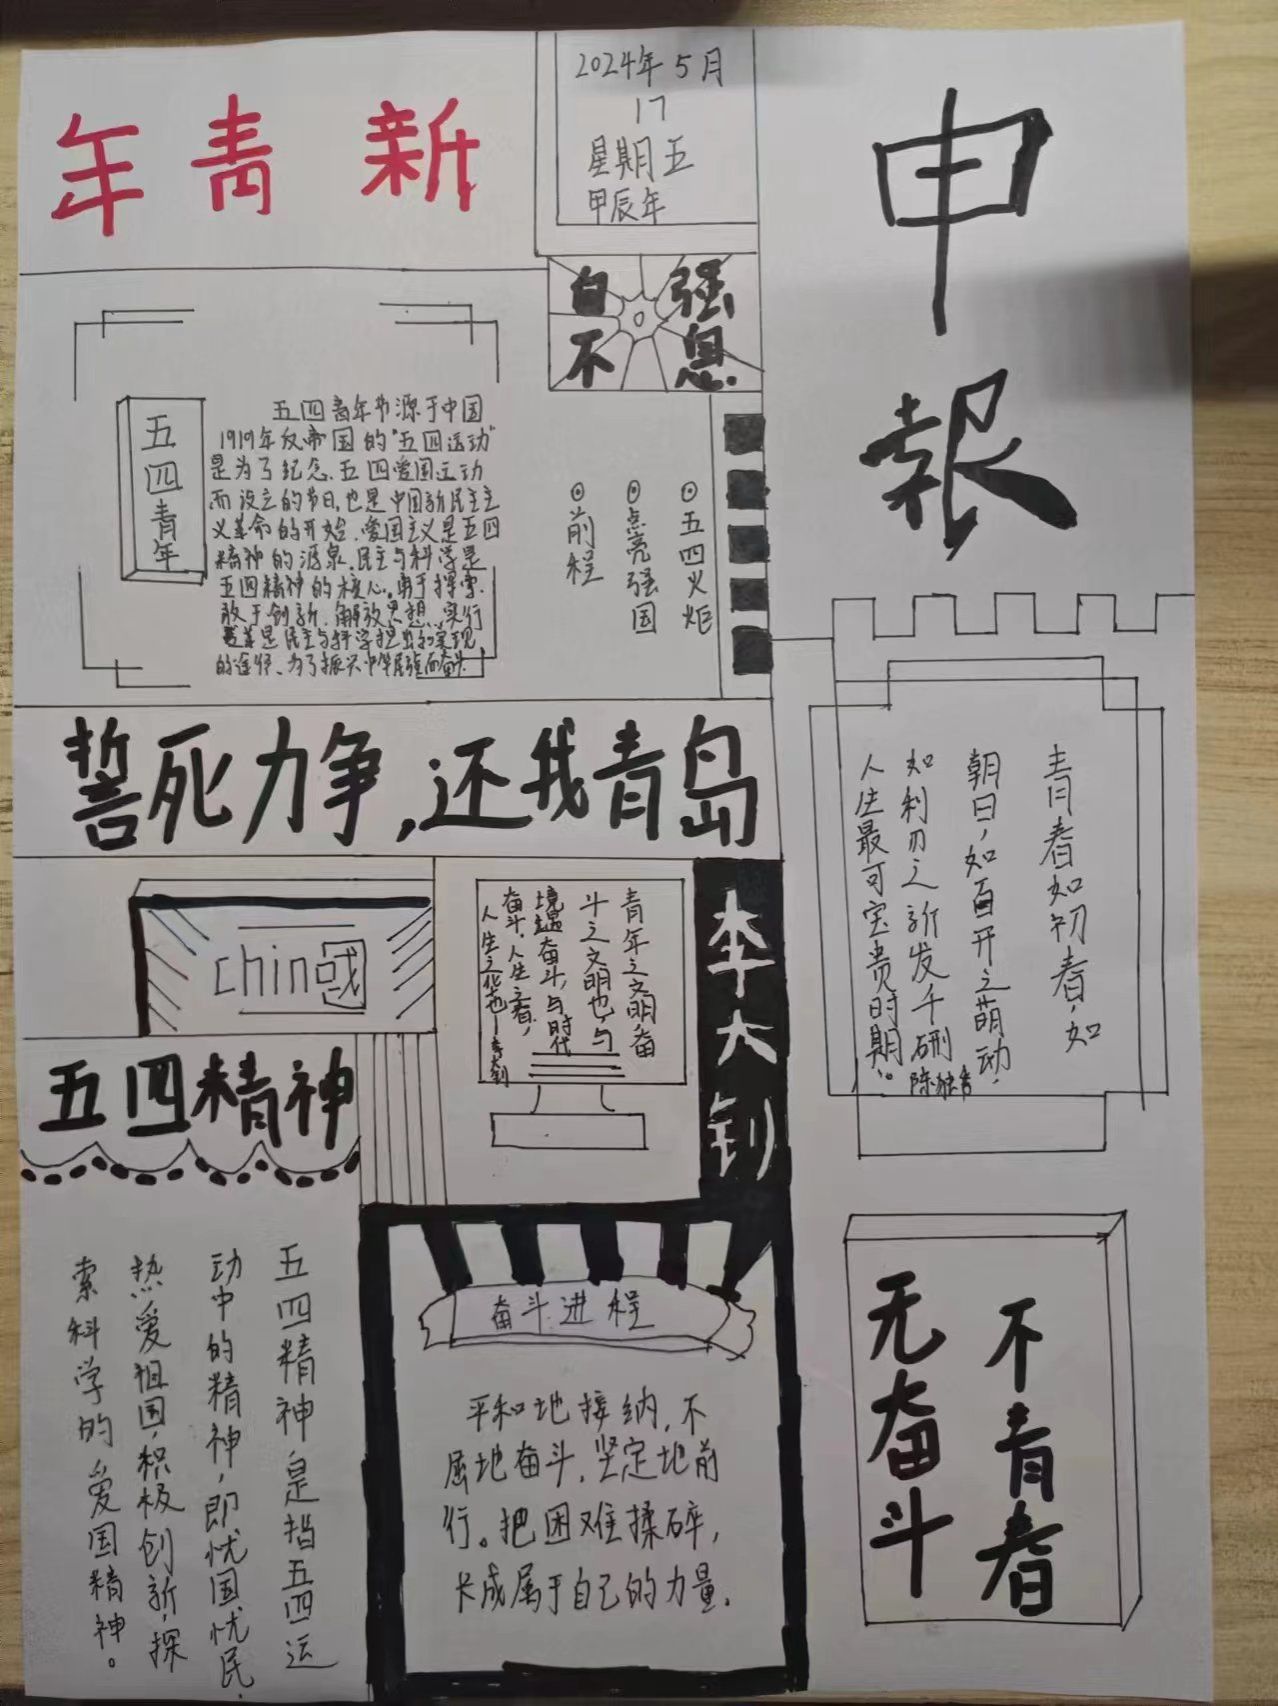 申報
2024年5月
17
星期五
甲辰年
新青年
自强
不息
五四青年
五四青年节源于中国
1919年反帝国的"五四运动"
是为了纪念五四爱国运动
而设立的节日,也是中国新民主主
义革命的开始.爱国主义是五四
精神的源泉.民主与科学是
五四精神的核心。勇于探索.
敢于创新.解放思想.实行
的途径、为了振兴中华
⊙五四火炬
⊙点亮强国
⊙前程
誓死力争,还我青岛
青春如初春,如
朝日,如百开之萌动,
如利刃之新发于硎
人生最可宝贵时期。
陈独秀
chin國
青年之文明,奋
斗之文明也,与
境遇奋斗,与时代
奋斗,人生之春,
人生之化也—李大钊
李大钊
五四精神
五四精神是指五四运
动中的精神,即忧国忧民、
热爱祖国,积极创新,探
索科学的爱国精神。
奋斗进程
平和地接纳,不
屈地奋斗,坚定地前
行。把困难揉碎,
长成属于自己的力量.
不青春
无奋斗